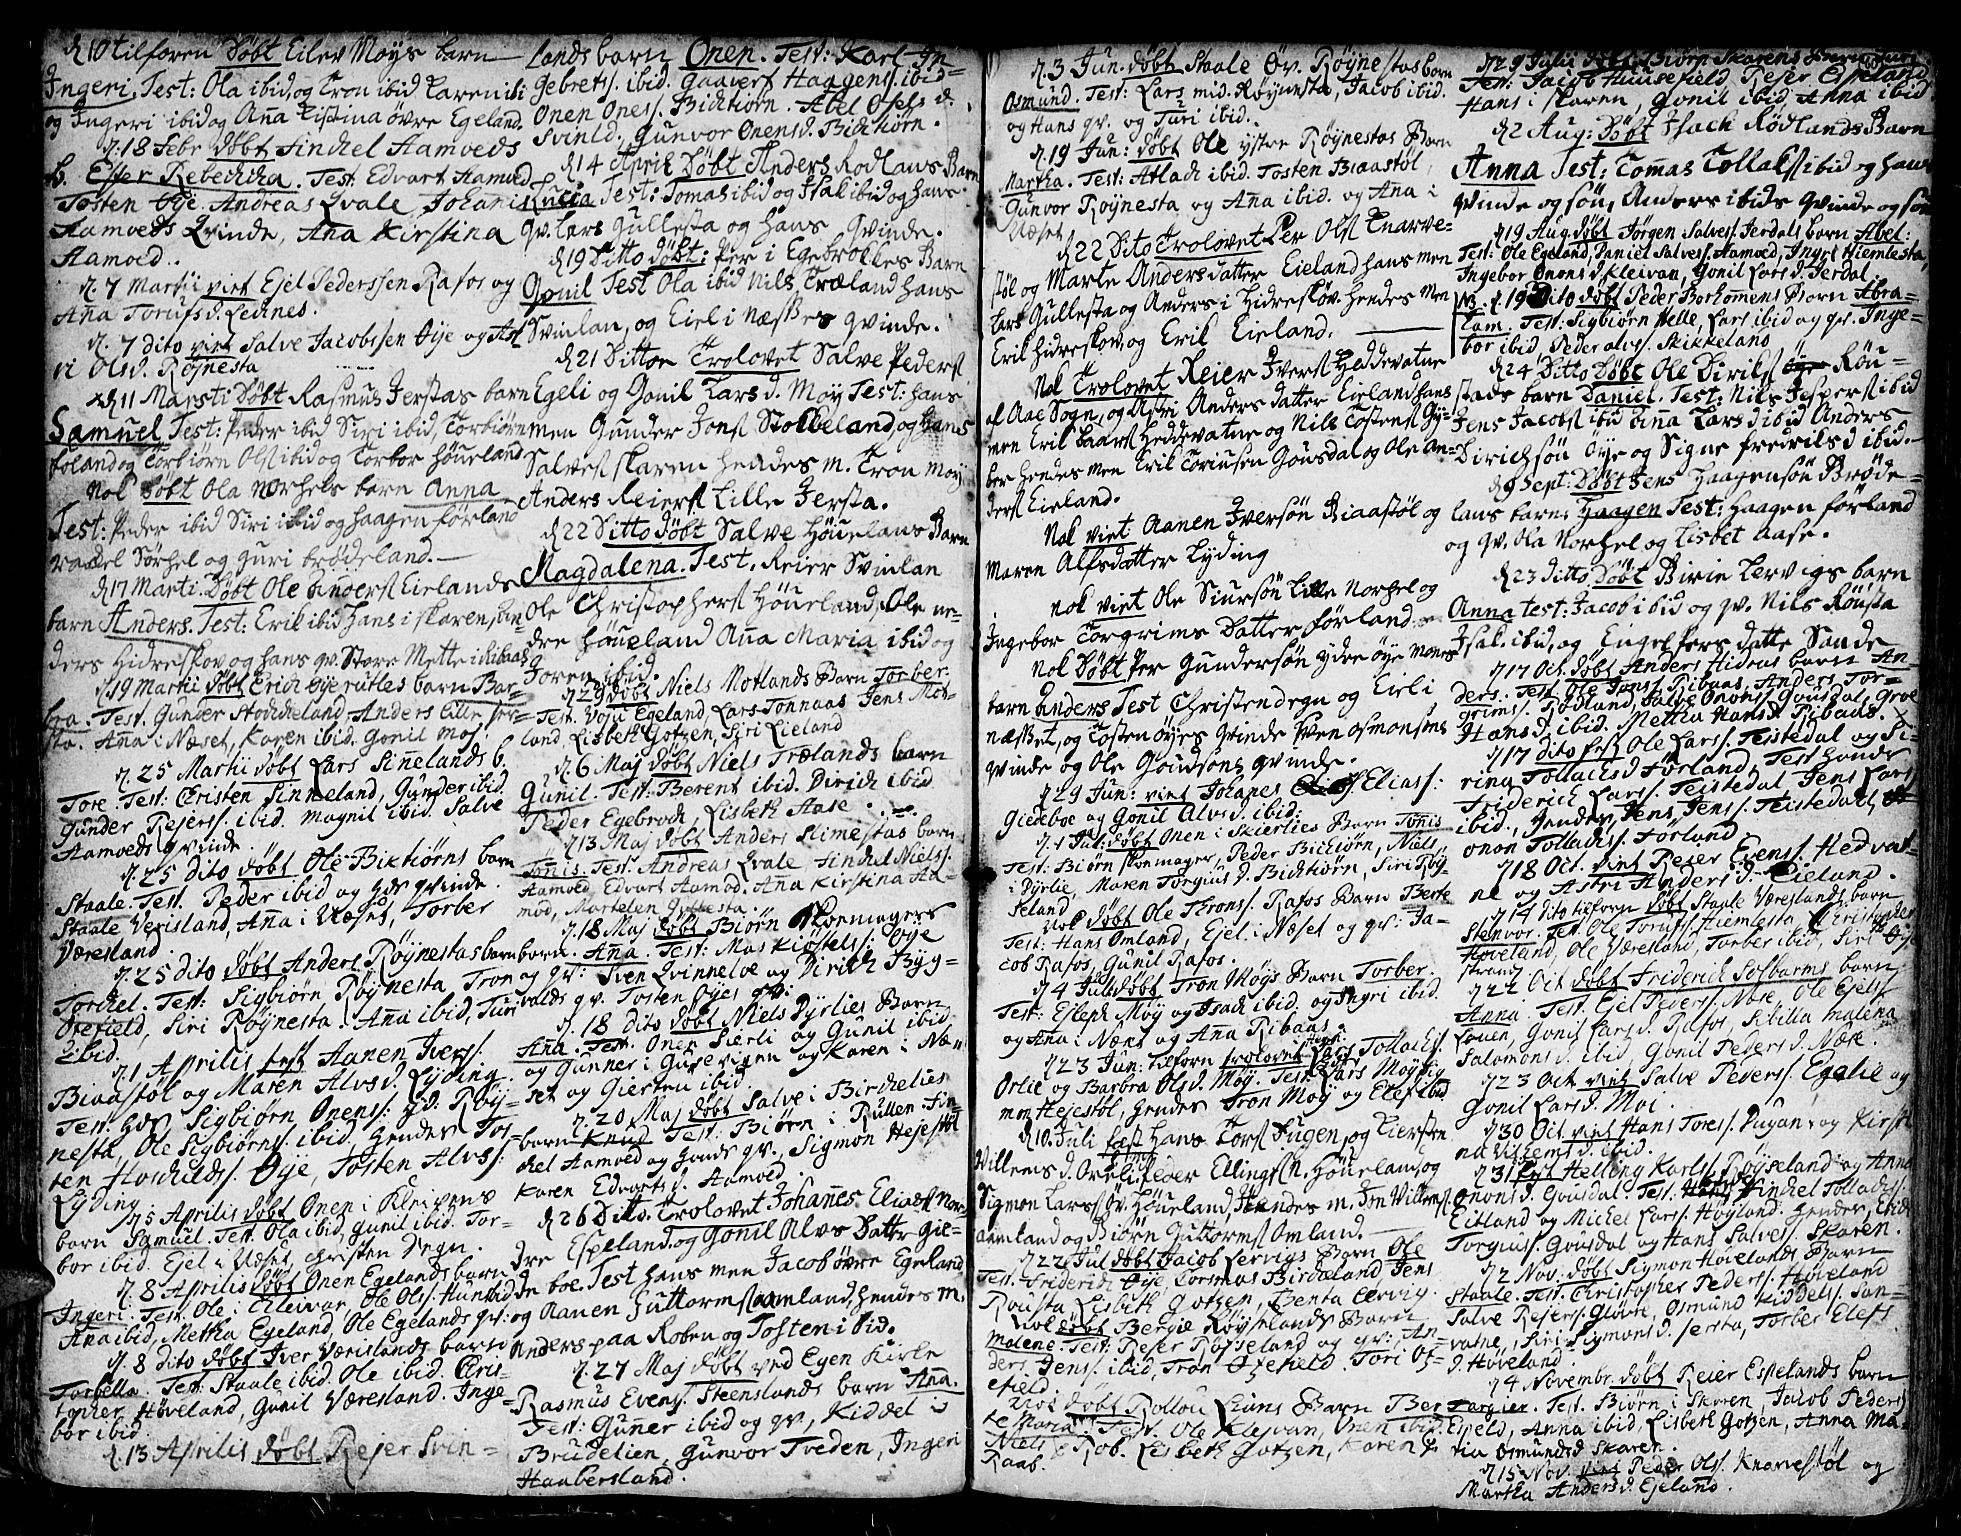 d 10 tilforen Døbt Eilev Moys barn
Ingeri. Test: Ola ibid, og Tron ibid Karen ibi
og Ingeri ibid og Ana Kistina øvre Egeland.
d. 18 Febr døbt Finchel Aamoeds
b. Ester Rebechcha. Test: Edvart Aamoed
Tosten Øye. Andreas Qvale, Johanis
Aamoeds Qvinde, Ana Kirstina
Aamoed.
d. 7 Martii viet Ejel Pederssen Rafos og
Ana Torufs d. Lednes.
d. 7 dito viet Salve Jacobssen Øye og
ri Ols d. Røynesta
d 11 Marsti Døbt Rasmus Jerstas barn
Samuel Test: Peder ibid Siri ibid, Torbiørn
foland og Torbiørn Ols ibid og Torbor Høueland
Nok Døbt Ola Norhels barn Anna
Test: Peder ibid Siri ibid og Haagen førland
Sørhel og Guri brødeland.
d 17 Marti Døbt Ole Anders Eielands
barn Anders. Test: Erik ibid Hans i skaren, An-
ders Hidreskov og hans qv. Store Mette i Ribaas
d. 19 Martii døbt Erich Øye barn Bar-
bra. Test. Gunder Stochcheland, Anders Lille Jer-
sta. Ana i Næset, Karen ibid. Gonil Moj.
d. 25 Martii døbt Lars Sinelands b.
Tore. Test: Christen Sinneland, Gunder ibid.
Gunder Rejers. ibid. Magnil ibid. Salve
Aamoeds qvinde.
d. 25 dito døbt Ole Biktiørns barn
Staale. Test. Peder ibid og hds qvinde.
Staale Verisland, Ana i Næset, Torber
Væresland.
d. 25 dito døbt Anders Røynestas barn
Torchel. Test: Sigbiørn Røynesta, Tron
Orefield, Siri Røynesta. Ana ibid, Turi
ibid.
d 1 Aprilis fest Aanen Ivers:
Biaastøl og Maren Alvs d. Lyding.
Test: hds, Sigbiørn Onens: Røy-
nesta, Ole Sigbiørns: ibid, hendes Tos-
ten Øye, Tosten Alvs:
Lyding.
d 5 Aprilis døbt Onen i Kleivens
barn Samuel. Test. Ola ibid, Gunil ibid. Tor-
bor ibid. Ejel i Næset, Christen Degn.
d. 8 Aprilis døbt Onen Egelands barn
Ingeri. Test. Ole i Eileivar, Ole Ols: Hunsbed
Ana ibid, Mettha Egeland, Ole Egelands qv:
d. 8 dito døbt Iver Værislands barn
Torbella. Test: Staale ibid. Ole ibid. Chris-
topher Høveland, Gunil Væresland. Inge-
bor ibid.
d. 13 Aprilis døbt Rejer Svin-
lands barn Onen. Test: Karl In-
gebrets. ibid. Gaavert Haagens. ibid-
Onen Ones: Bichtiørn. Abel Osels d.
Svinld. Gunvor Onensd. Bichtiørn.
d 14 April Døbt Anders Rødlans Barn
Lucia Test: Tomas ibid og Isak ibid og hans
qv. Lars Gullesta og hans Qvinde.
d 19 Ditto døbt: Per i Egebrokkes Barn
Gonil Test Ola ibid Nils Træland hans
Svinlan, og Eiel i Næsets qvinde.
d 21 Dittoe Trolovet Salve Peders
Egeli og Gonil Lars d. Moy Test: Hans
men Gunder Jons Stolkeland, og Hans
Salves skaren hendes m. Tron Moy
Anders Reiers Lille Jersta.
d 22 Ditto døbt Salve Høuelans Barn
Magdalena. Test. Reier Svinlan
Ole Christophers Høueland, Ole ne-
dre Høueland Ana Maria ibid og
Joren ibid.
d 29 døbt Niels Motlands Barn Torber.
Test. Egeland, Lars Tonnaas Jens Mot-
land, Lisbeth Gotzen, Siri Eieland
d. 6 Maj døbt Niels Trælands barn
Gunil. Test: Berent ibid. Dirich ibid
Peder Egebroch, Lisbeth Aase.
d 13 Maj døbt Anders Slimestas barn
Tønis. Test. Andreas Qvale Finchel Niels.
Aamoed, Edvart Aamod. Ana Kirstina Aa-
mod, Gullesta.
d. 18 Maj døbt Biørn Skoemagers
barn. Ana. Test: Mas Øye
og qv: Sven Qvinnelve og Dirich Byg-
valds qv. Tosten Øyes qv:
d. 18 dito døbt Niels Dyrlies Barn
Ana. Test. Onen Sierli og Gunil ibid.
og Gunner i Gusevigen og Karen i Næ-
set og Gierten ibid.
d. 20 Maj døbt Salve i Birchelies
barn Knud Test: Biørn i Rullen Fin-
chel Aamoed og hands qv, Sigmon Hejestøl
Karen Edvarts d. Aamoed.
d 26 Ditto. Trolovet Johanes Eliaes Nor-
dre Espeland og Gonil Alvs Datter Gie-
de boe. Test Hans men Jacob øvre Egeland
og Aanen Guttorms Aamland, hendes m.
Anders paa Roben og Tosten ibid.
d. 27 Maj døbt ved Egen Kirke
Rasmus Evens, Steenslands barn Ana.
Test: Gunner ibid og qv, Kiddel i
Brudelien, Gunvor Tveden, Ingeri
Haabersland.
d. 3 Jun. døbt Staale Øv. Røynestas barn
Osmund. Test: Lars mid. Røynesta, Jacob ibid.
og Hans qv. og Turi ibid.
d. 19 Jun: døbt Ole ystre Røynestas Barn
Martha. Test: Atlach ibid. Tosten Biaastøl,
Gunvor Røynesta og Ana ibid. og Ana i
Næset
d 22 Dito Trolovet Per Ols Cnarve-
støl og Marte Anders datter Eieland hans men
Lars Gullesta og Anders i Hidreskov. Hendes men
Erik Hidreskov og Erik Eieland.
Nok Trolovet Reier Ivers Heddevatne
af Aae Sogn, og Astri Anders datter Eieland hans
men Erik Laars Heddevatne og Nils Tostens Gy-
ber hendes men Erik Toriusen Gousdal og Ole An-
ders Eieland.
Nok viet Aanen Iversøn Biaastøl og
Maren Alfsdatter Lyding
Nok viet Ole Siursøn Lille Norhel og
Ingebor Torgrims Datter Førland.
Nok Døbt Per Gundersøn ydre øye
barn Anders Test Christen degn og Eiel i
næset, og Tosten øyes qvinde Sven Osmonsøns
qvinde og Ole Goudsøns qvinde.
d 29 Jun: viet Johanes Elias:
Giedeboe og Gonil Alvs d. ibid:
d. 1 Jul: døbt Onen i Skierlies Barn Tønis
Test: Biørn skomager, Peder Bichtiørn, Niels
i Dyrlie, Maren Torgius d. Bichtiørn, Siri Røy-
seland.
Nok døbt Ole Throns: Rafos Barn Berte
Test: Hans Omland, Ejel i Næset og qv: Ja-
cob Rafos, Gunil Rafos.
d 4 Jul døbt Tron Møys Barn Torber.
Test: Esteph Møy og Isach ibid. og Ingri ibid.
og Ana i Næset og Ana Ribaas.
d 23 Jun: tilforn trolovet Lars Tollachs.
Ortie og Barbra Ols d. Møy. Test. Lars Møyvig
men Hejestøl, hendes Tron Møy og Elef ibid
d 10. Juli fæst Hans Tors Fugen, og Kiersten
Villems d. Peder Ellings N. Høuelam, og
Sigmon Lars qv. Høueland, Hendes m. Jon Villems
aamland og Biørn Guttorms Omland.
d 22 Jul døbt Jacob Lervigs Barn Ole
Test: Friderich Øye, Corsmas Birkeland, Jens
Rousta, Lisbeth Gotzen, Benta Lervig.
Nok døbt Bergie Røyselands Barn
Malene. Test: Rejer Røyseland og qv: An-
ders Jens: ibid, Tron Orefield. Tori Or-
efield
Nok døbt Rollou Barn Ber-
te Maria. Test. Ole Klejvan, Onen ibid.
Niels Rob. Lisbeth Gotzen, Karen
Raab.
d 29 Julii Døbt Biørn Skarens Barn
Test: Jacob Huusefield Rejer Espeland
Hans i skaren, Gonil ibid, Anna ibid
d 2 Aug: Døbt Isach Rødlands Barn
Anna Test: Tomas Tollaks ibid og hans
qvinde og søn, Anders ibids qvinde og søn
d 19 Aug. døbt Jørgen Salves. Jerdals barn Abel:
Test: Ole Egeland, Daniel Salves. Aamoed, Ingri Hiemlesta,
Ingebor Onons d. Kleivan, Gonil Lars d. Jerdal.
d. 19 Dito døbt Peder Borhomens Barn Abra-
ham. Test: Sigbiørn Helle, Lars ibid og qv. Inge-
bor ibid. Peder alvs. Skikkeland
d 24 Ditto Døbt Ole Diriks Røu-
stads barn Daniel. Test: Nils Jespers ibid
Jens Jacobs ibid Anna Lars d ibid Anders
Dirichsøn Øye og Signe fredriks d ibid.
d 9 Sept: Døbt Jens Haagensøn Brøde-
lans barn: Haagen Test: Haagen førland
og qv. Ola Norhel og Lisbet Aase.
d 23 Ditto Døbt Birie Lervigs barn
Anna test: Jacob ibid og qv. Nils Røusta
Isak ibid, og Engel Pers datte Sande
d 17 Oct. døbt Anders Hidreus barn An-
ders. Test Ole Jons. Ribaas, Anders Tor-
grims. Rødland, Salve Onons. Gousdal, Groe
Hans d. ibid. Mettha Hans d. Ribaas.
d 17 dito fest Ole Lars. Teistedal og Si-
rina Tollachs d. Førland, Test hands
Friderich Lars. Teistedal Jens Lars
ibid, hendes Jens Jens. Teistedal,
Onon Tollachs. Førland.
d 18 Oct. viet Rejer Evens. Hedvat-
ne og Astri Anders d. Eieland.
d 14 dito tilforn døbt Staale Væreslands barn
Stenvor. Test. Ole Torufs. Hiemlesta, Christopher
Høveland, Ole Væresland, Torber ibid, Siri Øy-
strand
d 22 Oct døbt Friderich Solbarms barn
Anna. Test: Ejel Peders. Næse, Ole Ejels
Louen, Gonil Lars d. Rafos, Sibilla Malena
Salomons d. ibid, Gonil Peders d. Næse.
d 23 Oct viet Salve Peders. Egelie og
Gonil Lars d. Moi.
d 30 Oct viet Hans Tores. Fugan og Kirsti
na Villems d. ibid.
d 31 fest Helling Karls. Røyseland og Anna
Onons d. Gousdal. Test. Finchel Tollachs.
Eitland og Michel Lars. Høyland, hendes Eivi
Torgius: Gousdal og Hans Salves. Skaren.
d 2 Nov. døbt Sigmon Høvelands Barn
Staale. Test. Christopher Peders. Høveland
Salve Rejers. Gløvre, Osmund Kiddels. San-
vatne, Siri Sigmons d. Jersta, Torber Elefs
d. Høveland.
d 4 Novembr. døbt Rejer Espelands barn
Torgier. Test. Biørn i Skaren, Jacob Peders
Espeld, Anna ibid, Lisbeth Gotzen, Anna Ma-
ria Osmunds d Skaren.
d 15 Nov. viet Peder Ols. Knarvestøl og
Martha Anders d. Ejeland.